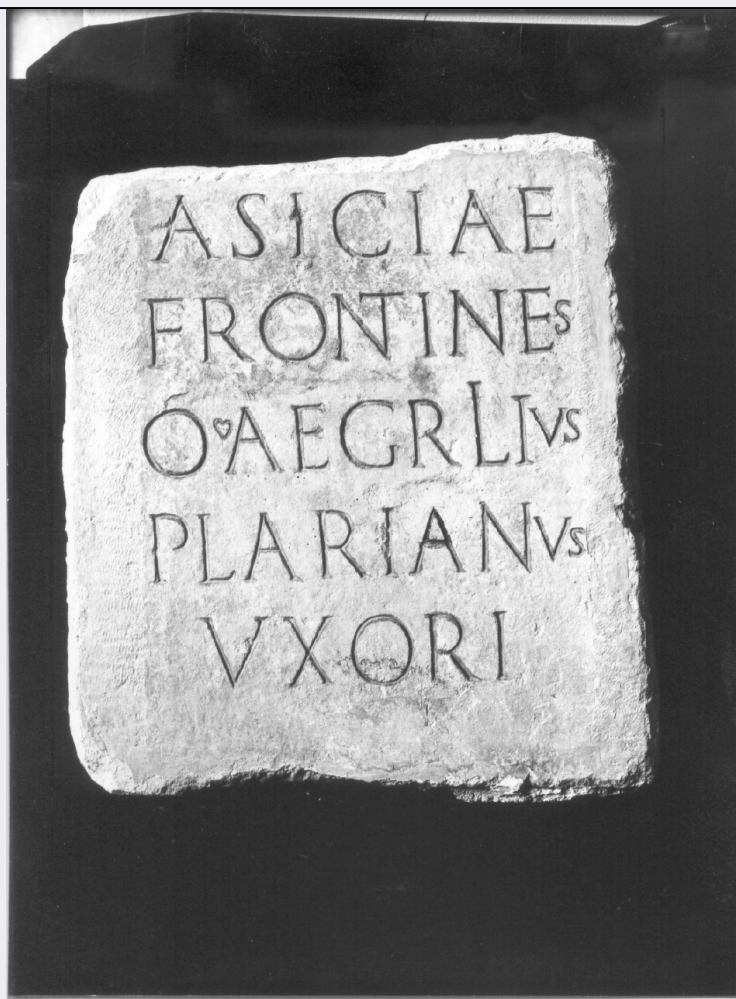 ASICIAE
FRONTINES
Ó AEGRLIVS
PLARIANVS
VXORI